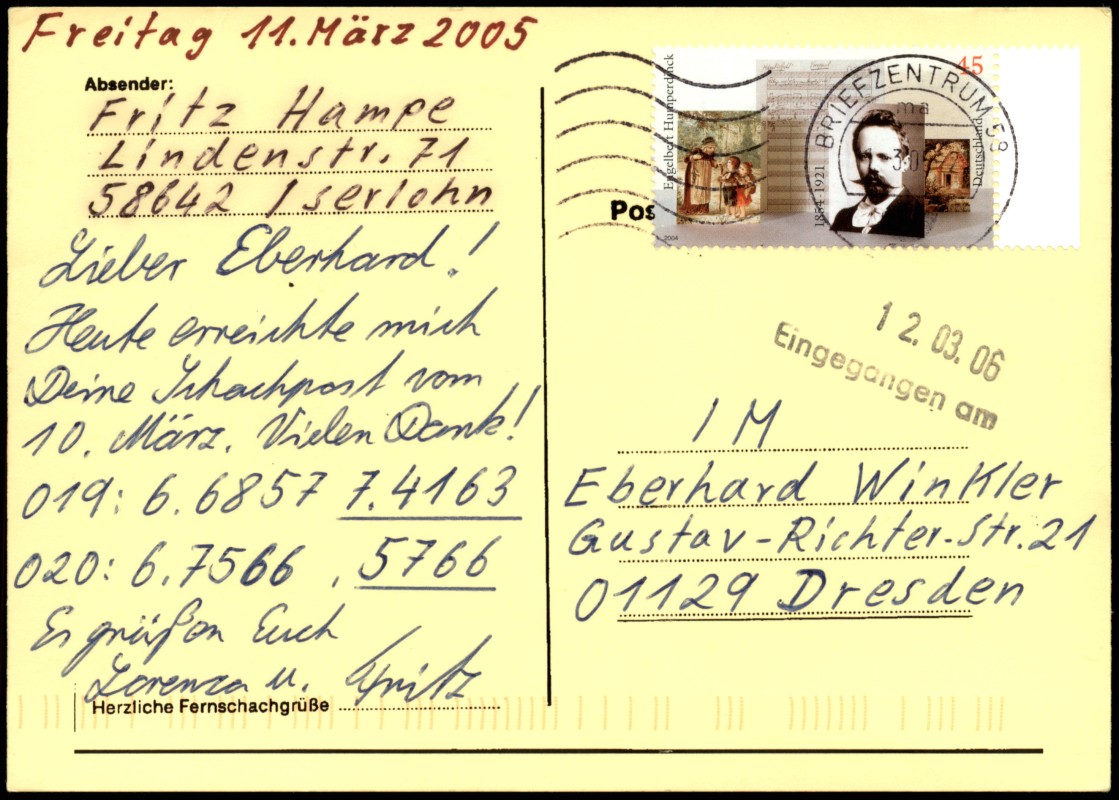 Freitag 11. März 2005
Absender:
Fritz Hampe
Lindenstr. 71
58642 Iserlohn
Lieber Eberhard!
Heute erreichte mich
Deine Schachpost vom
10. März. Vielen Dank!
019: 6.6857 7.4163
020: 6.7566 . 5766
Es grüßen Euch
Lorenza u. Fritz
Herzliche Fernschachgrüße
Pos
Engelbert Humperdinck
1854-1921
45
Deutschland
2004
BRIEFZENTRUM 58
ma
12.03.06
Eingegangen am
IM
Eberhard Winkler
Gustav-Richter-Str. 21
01129 Dresden